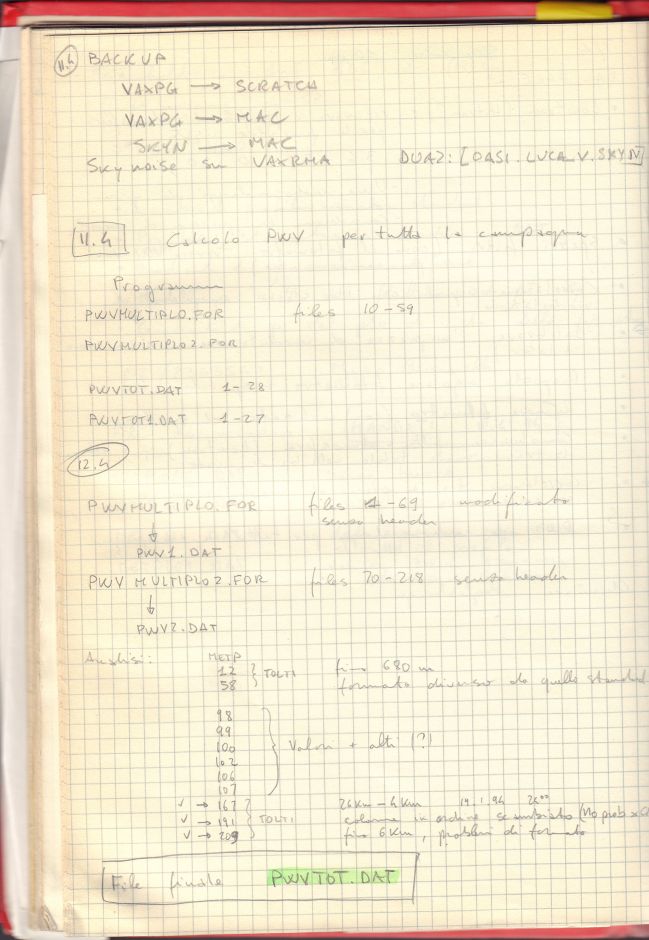 11.4 BACKUP
VAXPG → SCRATCH
VAXPG → MAC
SKYN → MAC
Sky noise su VAXRMA DUA2: [OASI.LUCA_V.SKYN]
11.4 Calcolo PWV per tutta la campagna
Programmi
PWVMULTIPLO.FOR files 10-59
PWVMULTIPLO2.FOR
PWVTOT.DAT 1-28
PWVTOT1.DAT 1-27
12.4
PWVMULTIPLO.FOR files 1-69 modificato
senza header
↓
PWV1.DAT
PWVMULTIPLO2.FOR files 70-218 senza header
↓
PWV2.DAT
Analisi: METP
12 } TOLTI fino 680 m
58 formato diverso da quello standard
98
99
100 } Valori + alti (?)
102
106
107
✓ → 167 } 26Km - 4Km 19.1.94
✓ → 191 TOLTI colonne in ordine scambiato (No prob x
✓ → 209 fino 6Km, problemi di formato
File finale PWVTOT.DAT